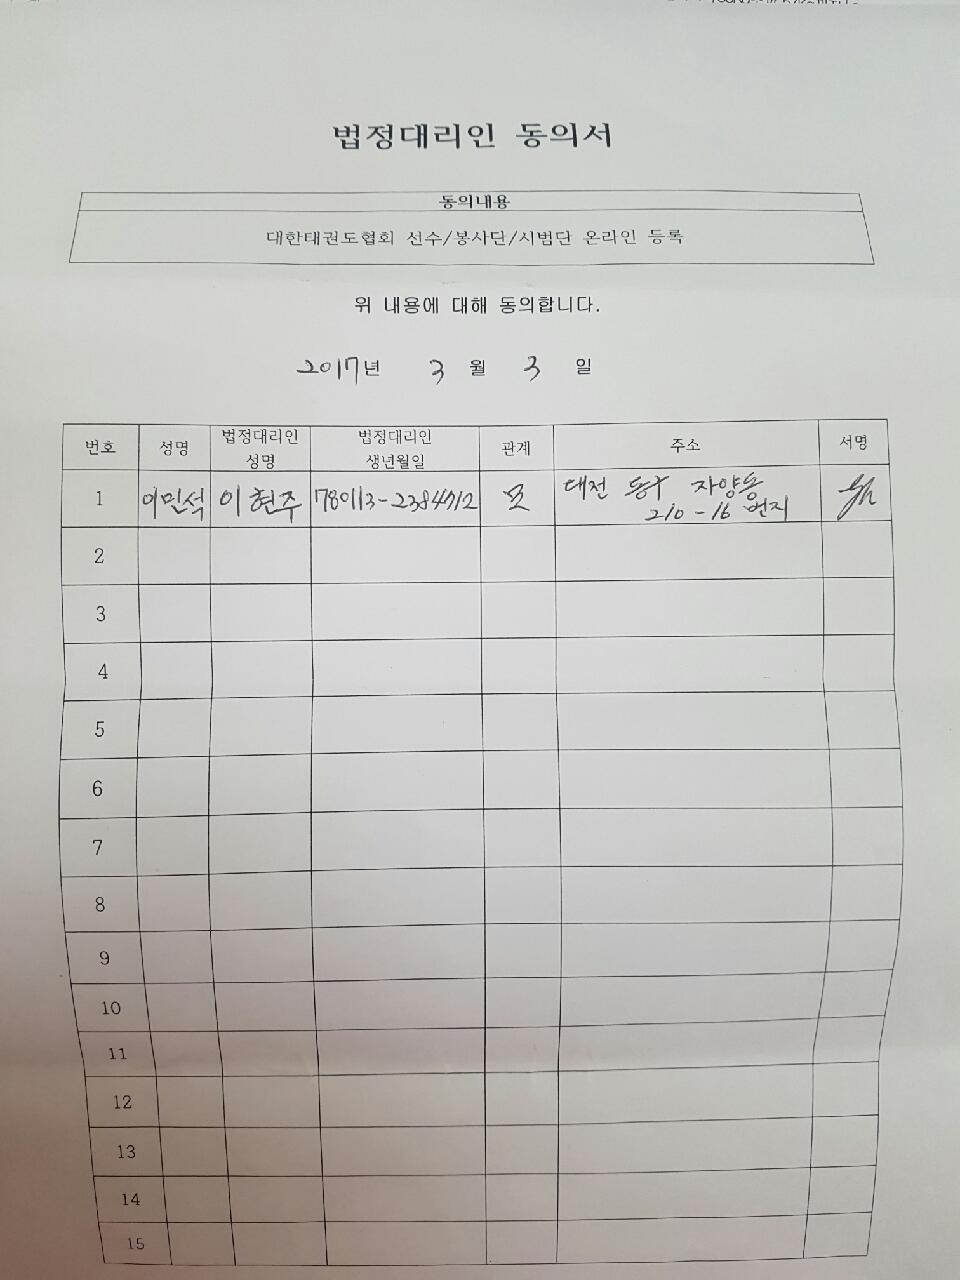 법정대리인 동의서
동의내용
대한태권도협회 선수/봉사단/시범단 온라인 등록
위 내용에 대해 동의합니다.
2017년 3 월 3 일
번호 성명 법정대리인 성명 법정대리인 생년월일 관계 주소 서명
1 이민석 이현주 780113-2384712 모 대전 동구 자양동
210-16 번지
2
3
4
5
6
7
8
9
10
11
12
13
14
15